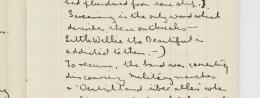 led plundered from some ship.).
Screaming is the only word which
describes these outbreaks —
Little Willie the Beautiful is
addicted to them. —)
To resume, the band was
discoursing military marches
a "Deutschland über alles" when